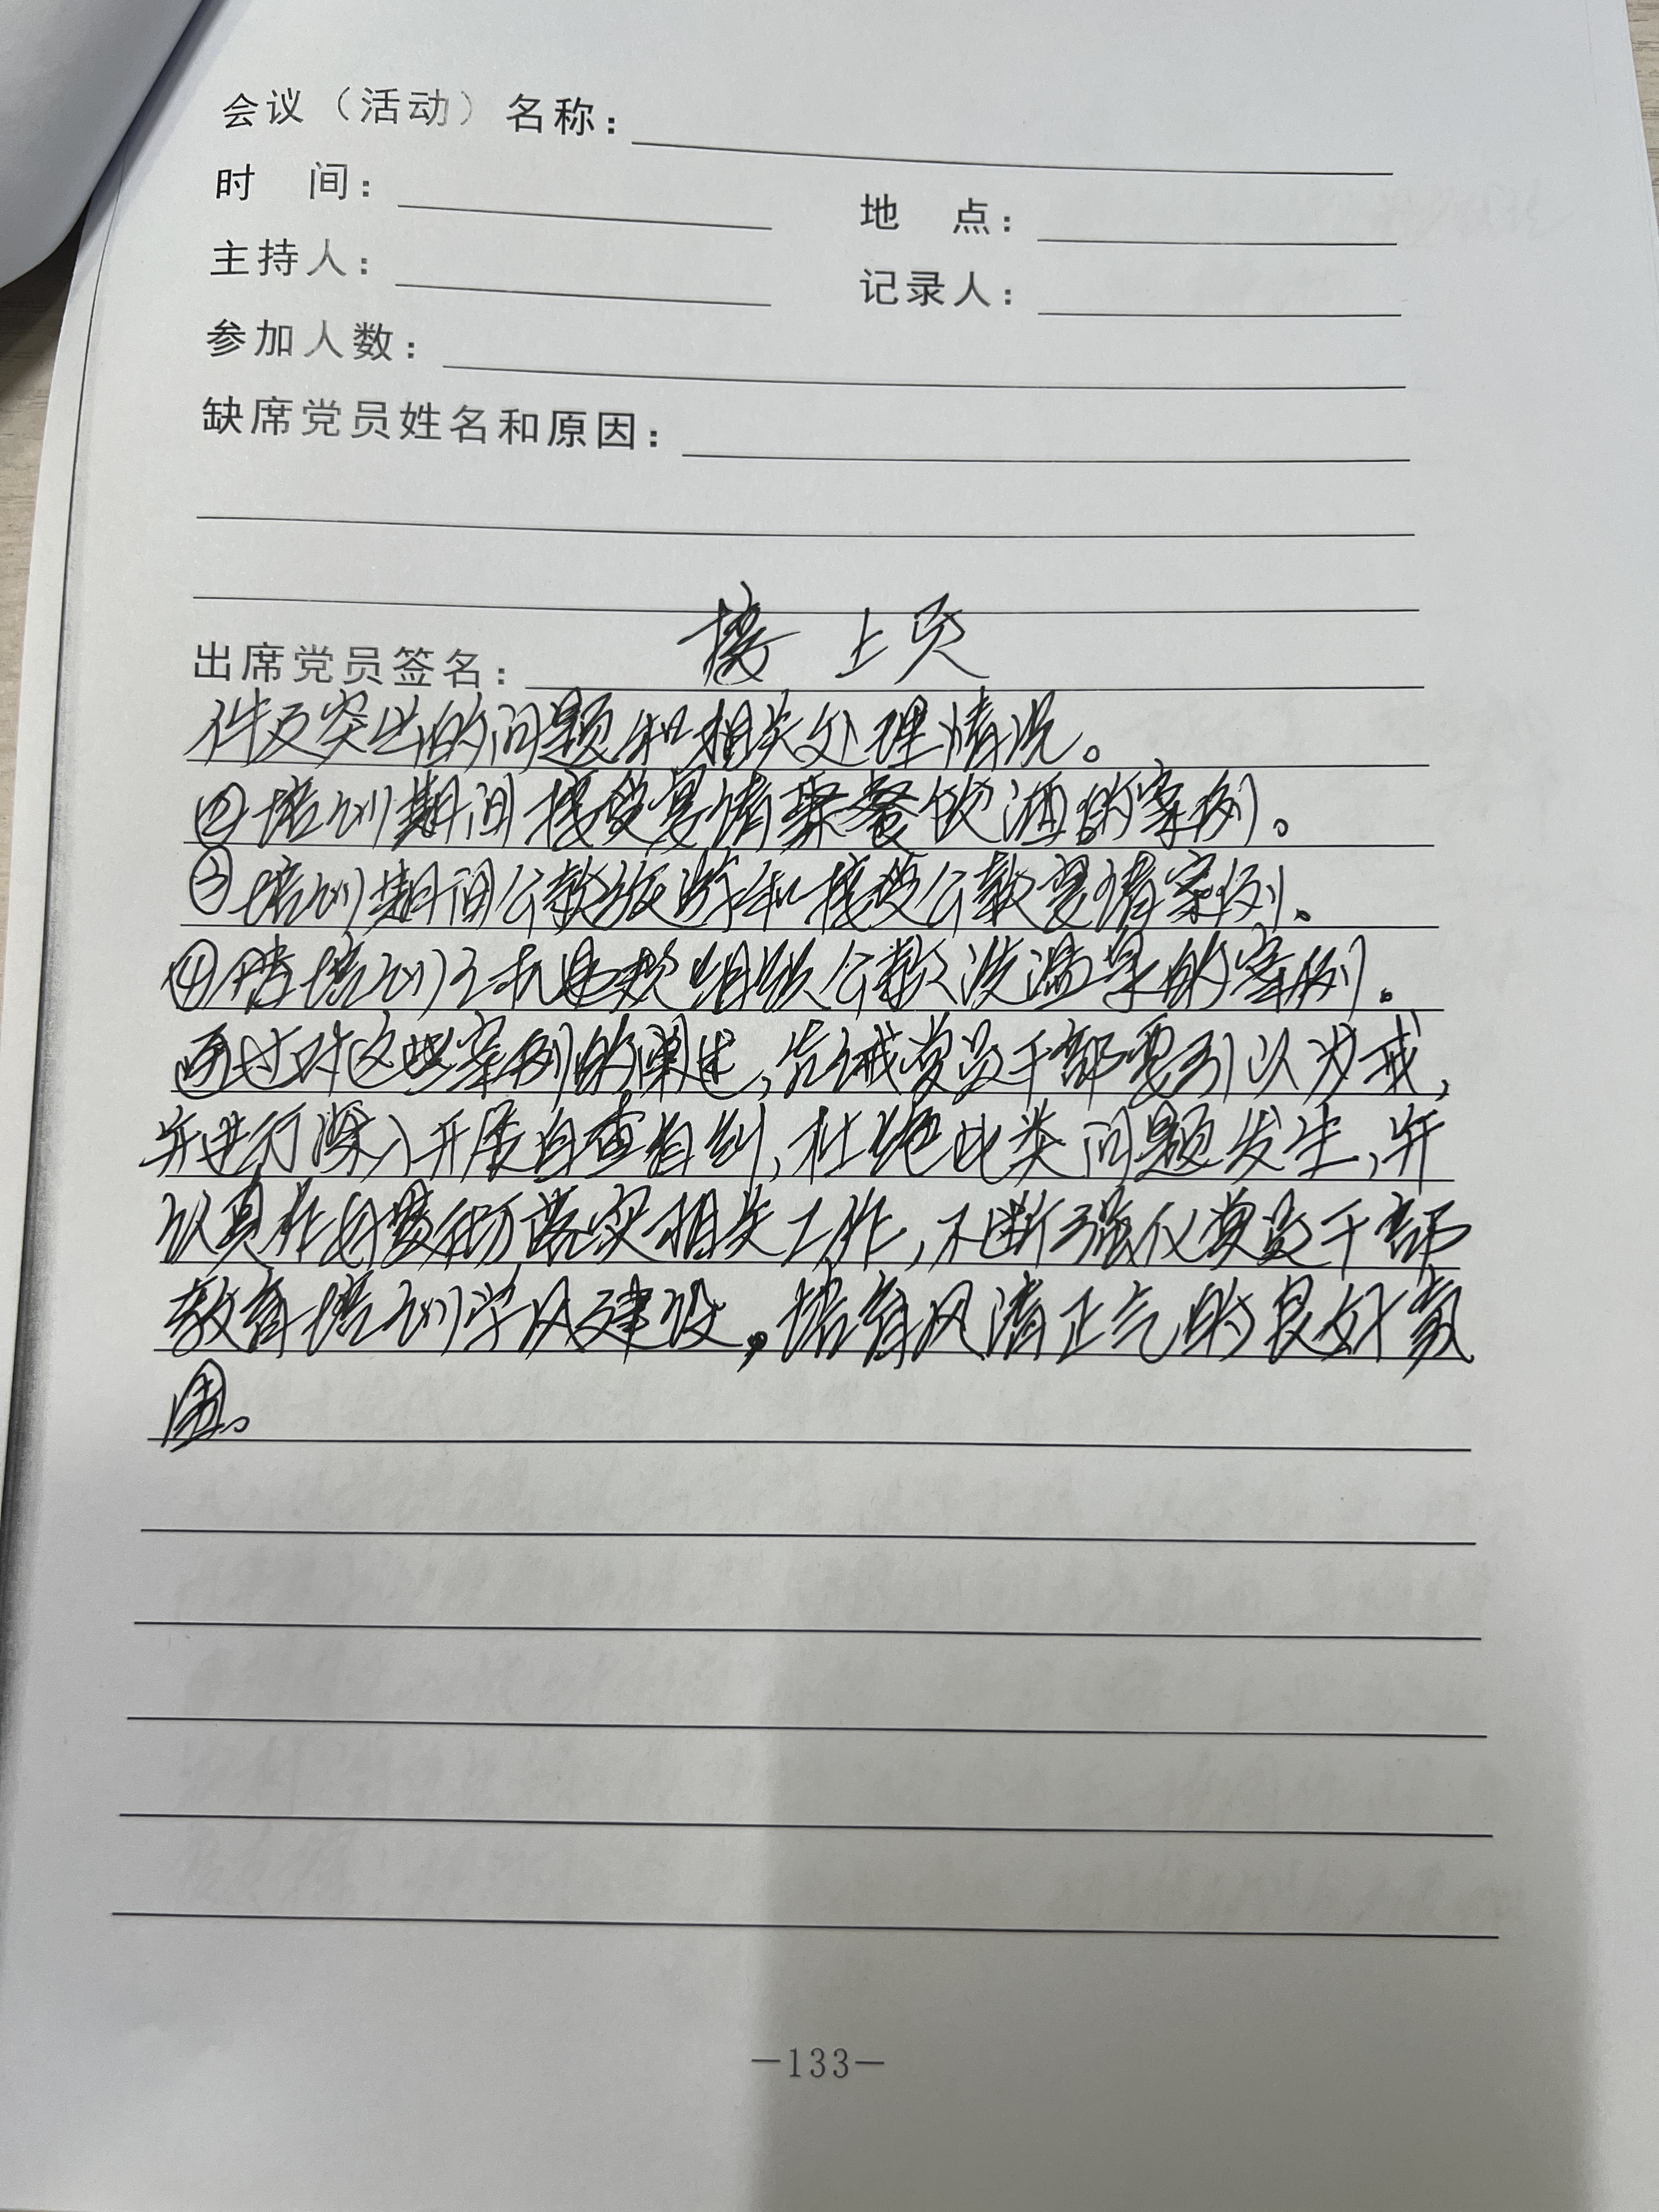 会议（活动）名称：
时 间： 地 点：
主持人： 记录人：
参加人数：
缺席党员姓名和原因：
接上页
出席党员签名：
件反突出的问题和相关处理情况。
②培训期间接受宴请聚餐饮酒的案例。
③培训期间公款旅游和接受公款宴请案例。
④借培训之机违规组织公款波温泉的案例。
通过对这些案例的阐述，告诫党员干部要引以为戒，
并进行深入开展自查自纠，杜绝此类问题发生，并
认真作好贯彻落实相关工作，不断强化党员干部
教育培训学风建设。培育风清正气的良好氛
围。
—133—